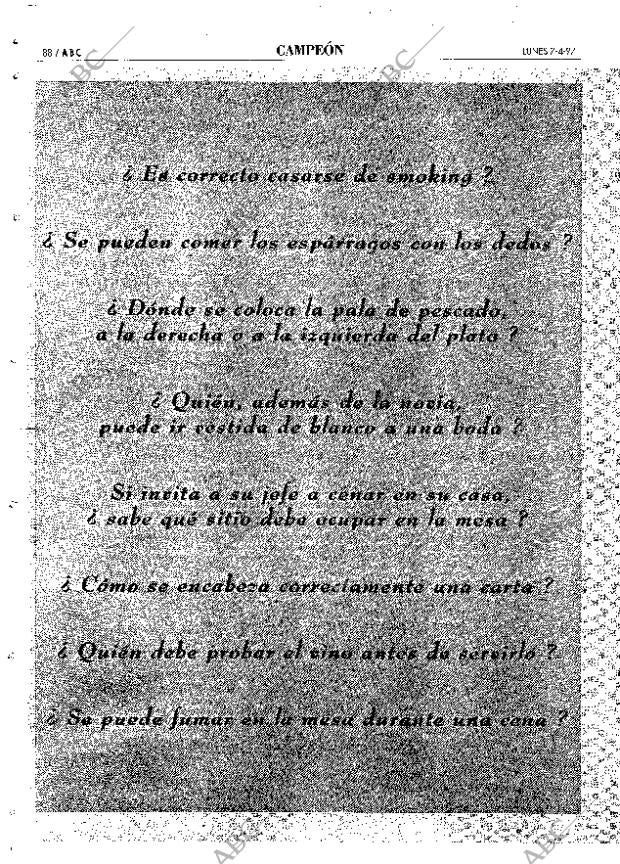 88 / ABC
CAMPEÓN
LUNES 7-4-97
¿ Es correcto casarse de smoking ?
¿ Se pueden comer los espárragos con los dedos ?
¿ Dónde se coloca la pala de pescado,
a la derecha o a la izquierda del plato ?
¿ Quién, además de la novia,
puede ir vestida de blanco a una boda ?
Si invita a su jefe a cenar en su casa,
¿ sabe qué sitio debe ocupar en la mesa ?
¿ Cómo se encabeza correctamente una carta ?
¿ Quién debe probar el vino antes de servirlo ?
¿ Se puede fumar en la mesa durante una cena ?